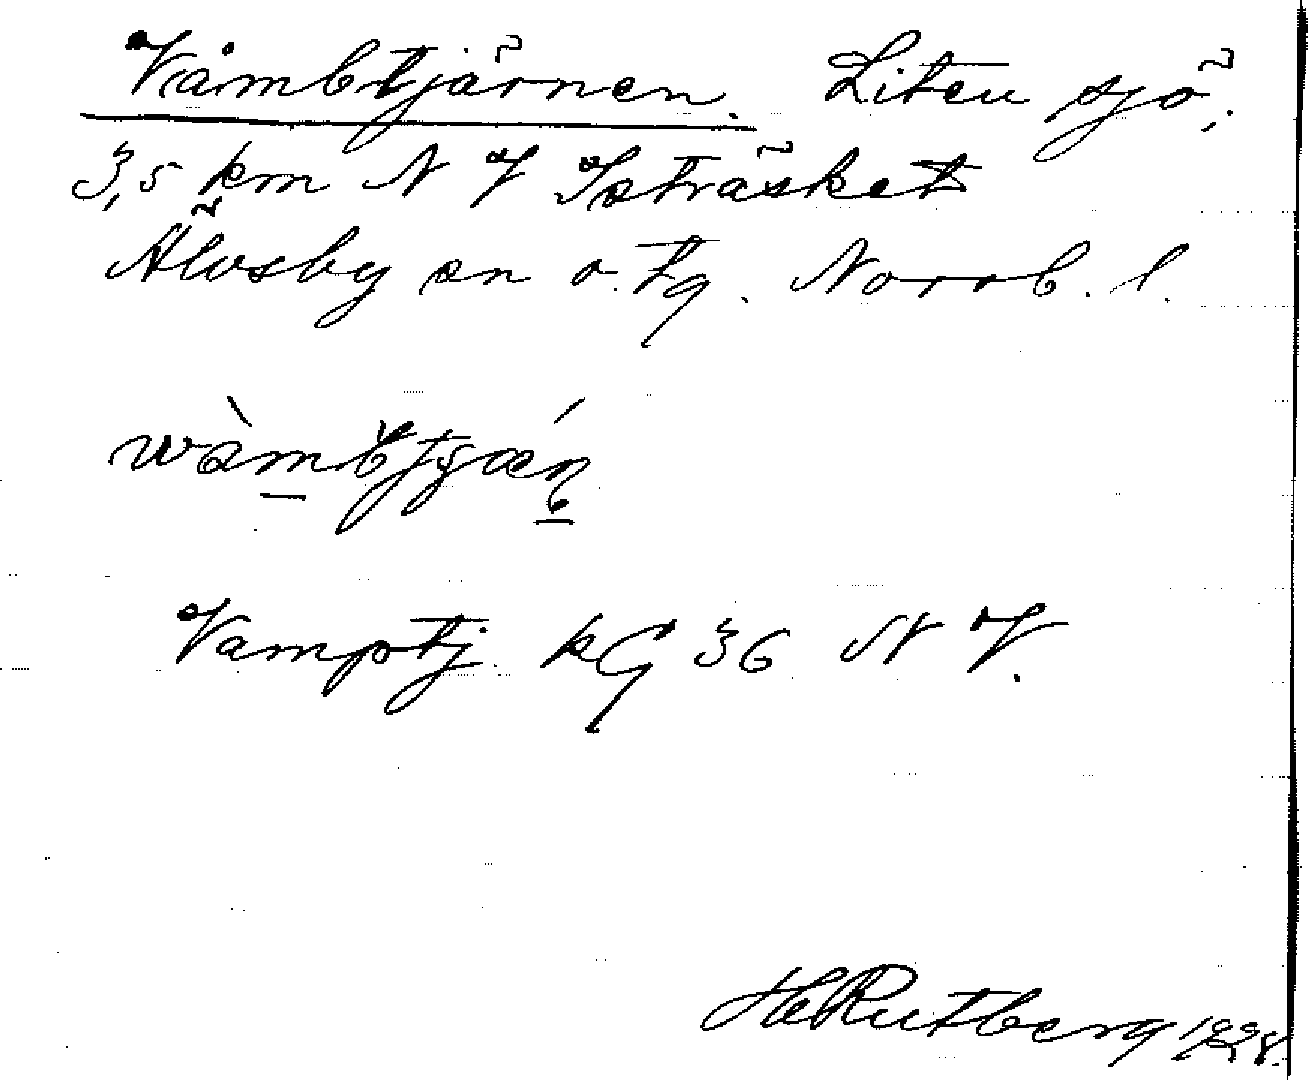 Våmbtjärnen. Liten sjö,
3,5 km N V Isträsket
Älvsby sn o. tg. Norrb. l.
Vamptj. kG 36 N V.
H Rutberg 1928.